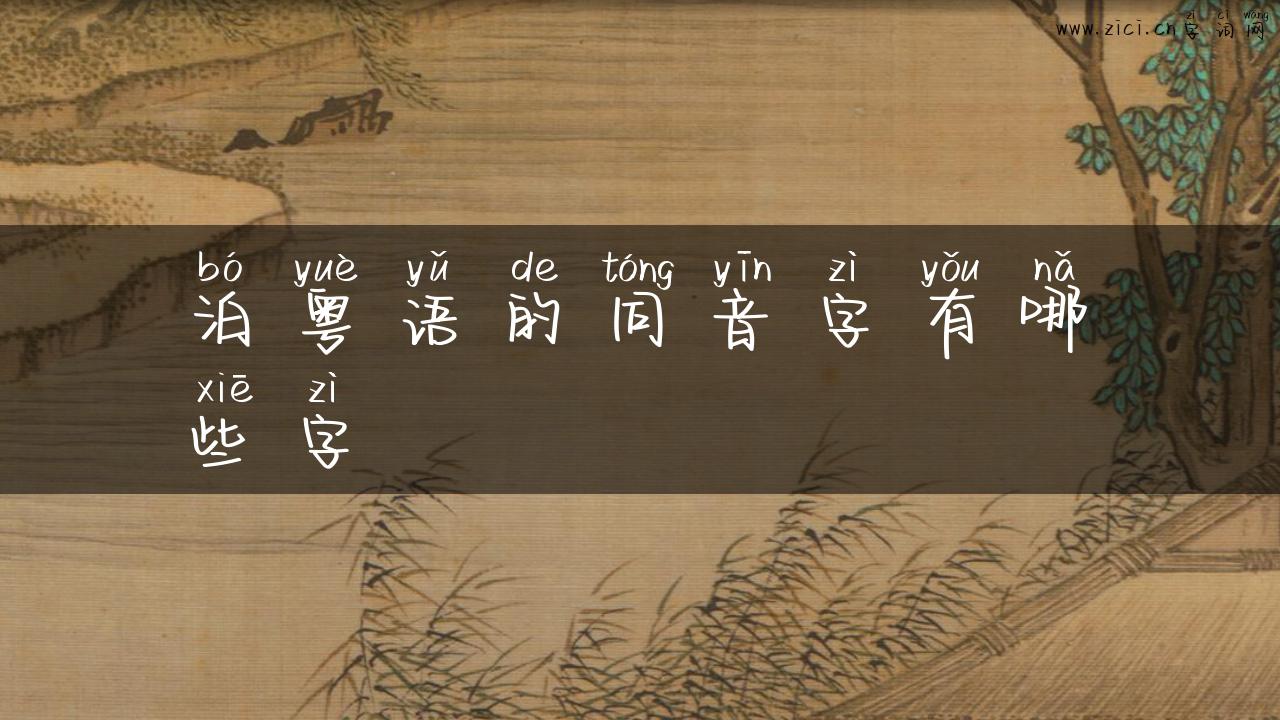 zì cí wǎng
www.zici.cn字词网
bó yuè yǔ de tóng yīn zì yǒu nǎ
泊粤语的同音字有哪
xiē zì
些字